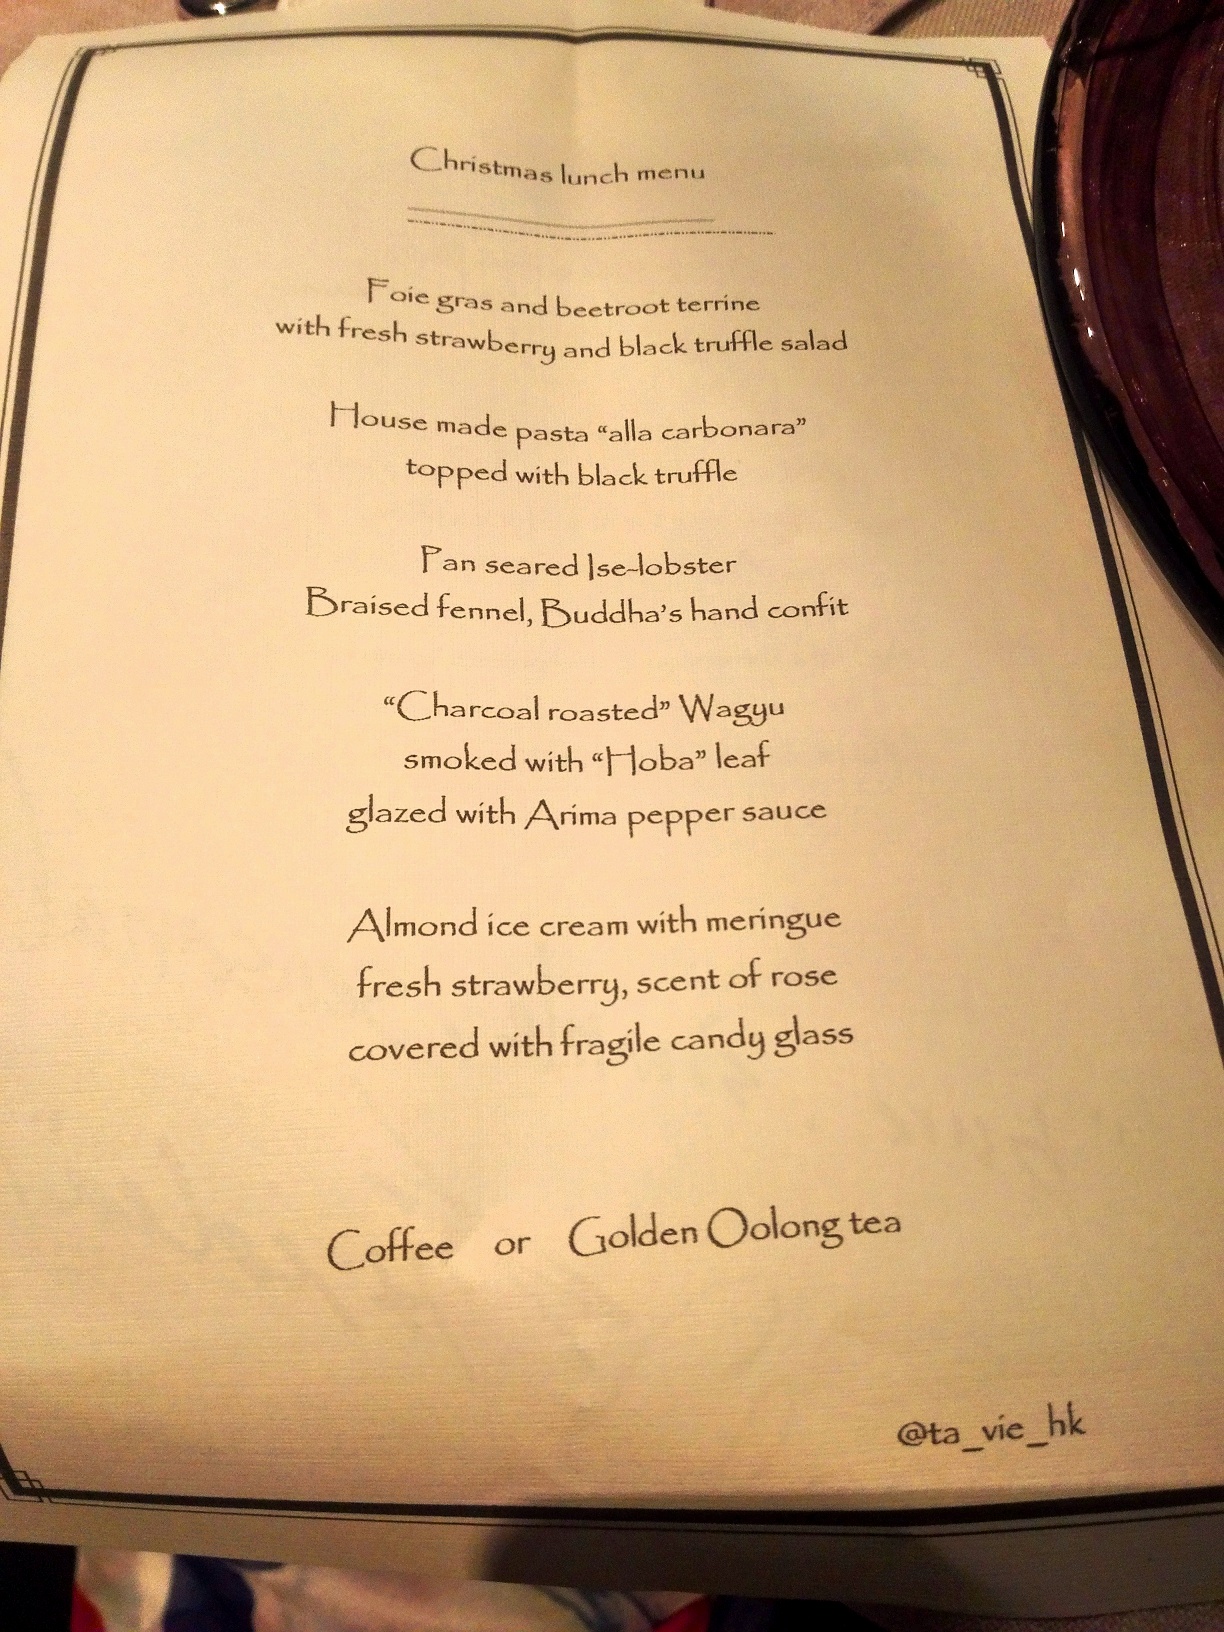 Christmas lunch menu
Foie gras and beetroot terrine
with fresh strawberry and black truffle salad
House made pasta “alla carbonara”
topped with black truffle
Pan seared Ise-lobster
Braised fennel, Buddha’s hand confit
“Charcoal roasted” Wagyu
smoked with “Hoba” leaf
glazed with Arima pepper sauce
Almond ice cream with meringue
fresh strawberry, scent of rose
covered with fragile candy glass
Coffee or Golden Oolong tea
@ta_vie_hk